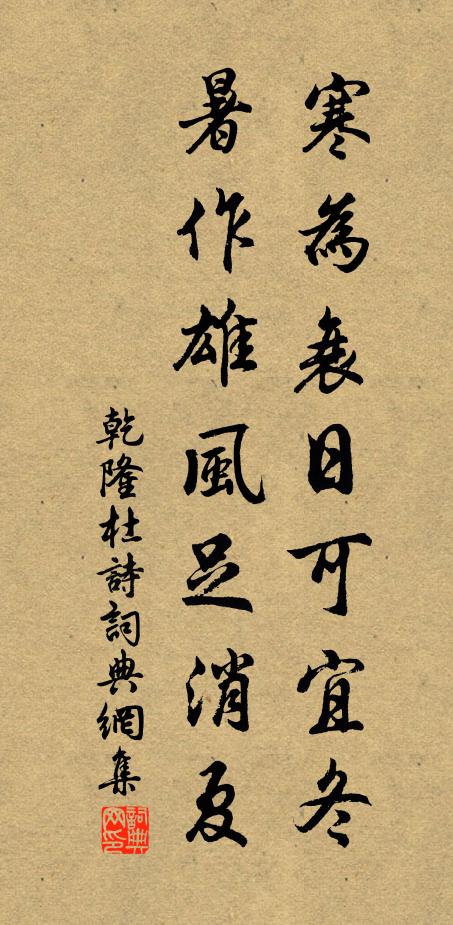 寒為衰日可宜冬
暑作雄風足消夏
乾隆杜詩詞典網集
詞典網印